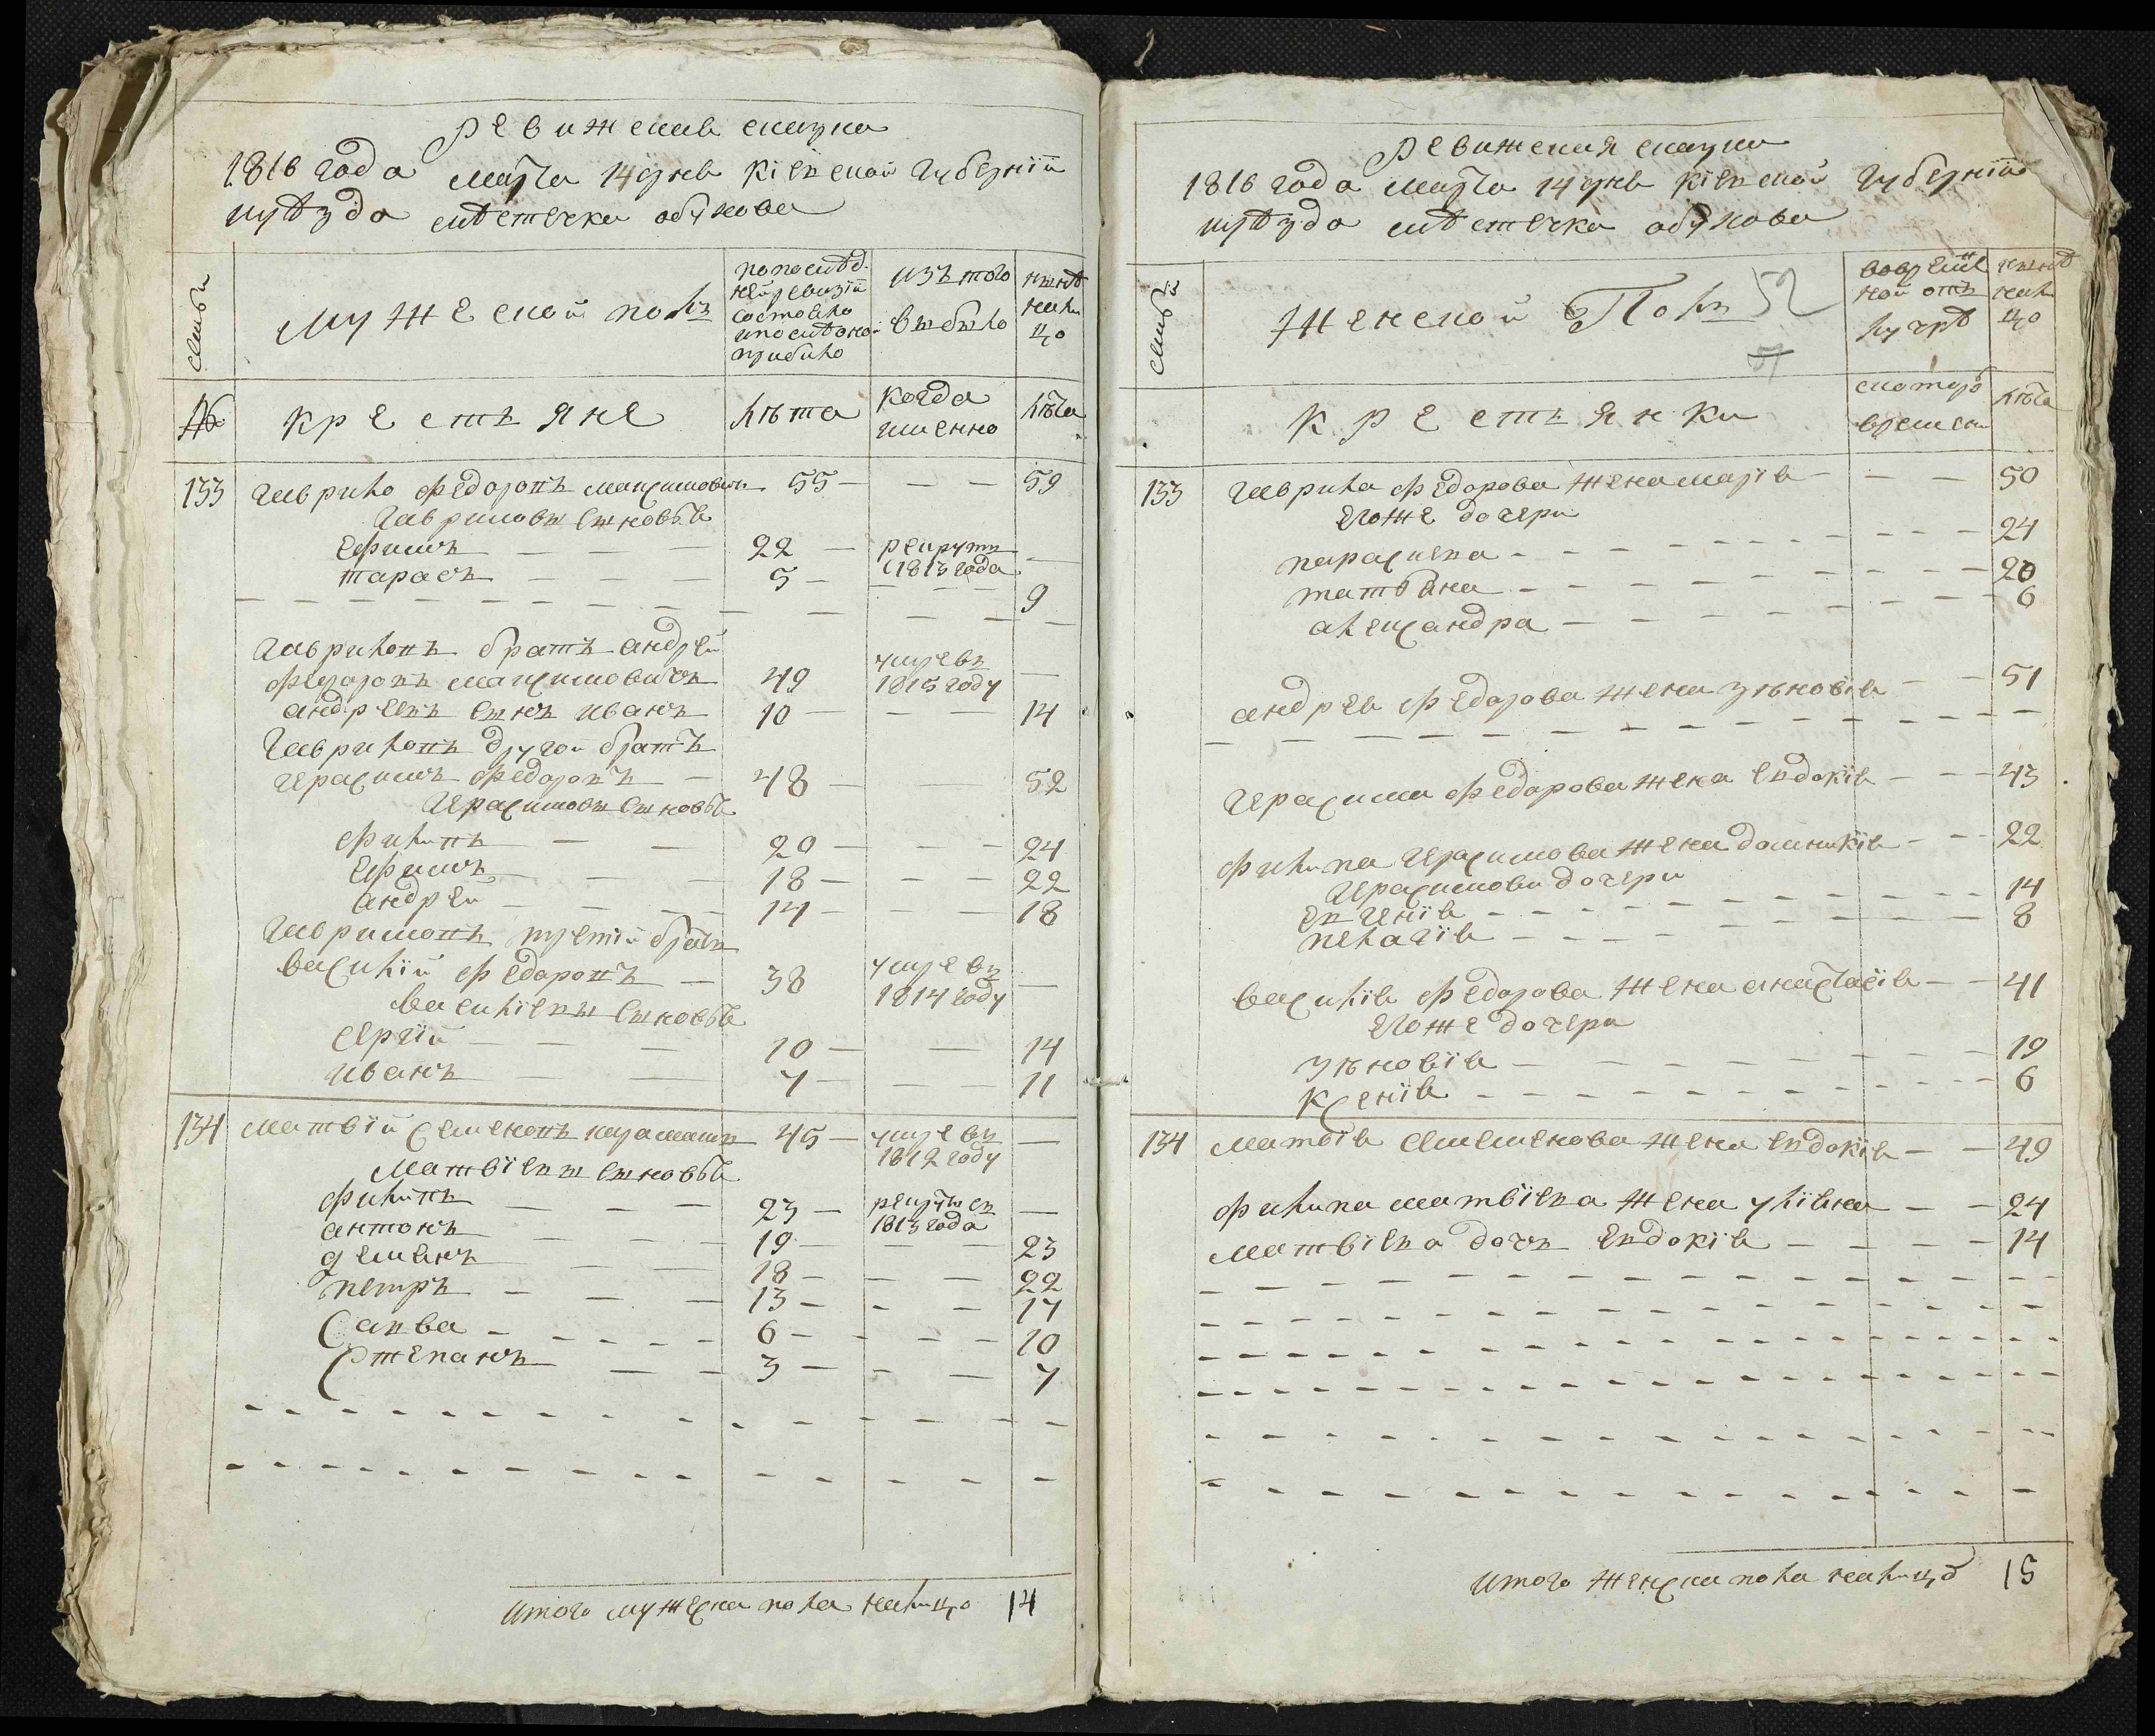 Ревижская сказка
1816 года марта 14 дня Кіевской губерніи
и уѣзда мѣстечка обухова
семьи
мужеской полъ
по послѣд.
ней ревизіи
состояло
и после оно-
прибыло
изъ того
выбыло
нынѣ
нали
цо
№
крестъяне
лѣта
когда
именно
лѣта
133 Гаврило Федоровъ Максимовичъ 55 — — — 59
Гавриловы сыновья
Ефимъ — — — 22 — рекрутъ —
тарасъ — — — 5 — с 1813 года
9
Гавриловъ братъ андрей
Федоровъ Максимовичъ 49 умре въ 1815 году —
андреевъ сынъ иванъ 10 — — — 14
Гавриловъ другой братъ
Герасимъ Федоровъ — 48 — — 52
Герасимовы сыновья
Филипъ — — 20 — — — 24
Ефимъ — — 18 — — — 22
андрей — — — 14 — — — 18
Гавриловъ третій братъ
василій Федоровъ — 38 умре въ 1814 году —
василіевы сыновья
сергій — — — 10 — — 14
иванъ — — 7 — — — 11
134 матвій Семеновъ 45 — умре въ 1812 году —
Матвіевы сыновья
Филипъ — — — 23 — рекрутъ съ 1813 года —
антонъ — — — 19 — — 23
демянъ — — 18 — — — 22
петръ — — — 13 — - — 17
Савва — - - - - 6 — - — — 10
Степанъ — — — 3 — - — 7
итого мужеска пола налицо 14
Ревижская сказка
1816 года марта 14 дня Кіевской Губерніи
и уѣзда мѣстечка обухова
семьи
женской Полъ 52
51
во времен
ной отъ
лучкѣ
нынѣ
нали
цо
крестъянки
с котораго
времени
лѣта
133 Гаврила Федорова жена марія — — — 50
его же дочери
параскева - - - 24
татьяна - - - 20
александра — - - 6
андрея Федорова жена зѣновія — — 51
Герасима Федорова жена Евдокія — — 43
Филипа Герасимова жена домникія — — 22
Герасимови дочери
Евгенія - - - 14
пелагія - - - 8
василія Федорова жена анастасія — — 41
его же дочери
зѣновія — — — 19
Ксенія - - - 6
134 матвія семенова жена Евдокія — — 49
Филипа матвіева жена уліяна — — 24
Матвіева дочь Евдокія — — — 14
итого женска пола налицо 15